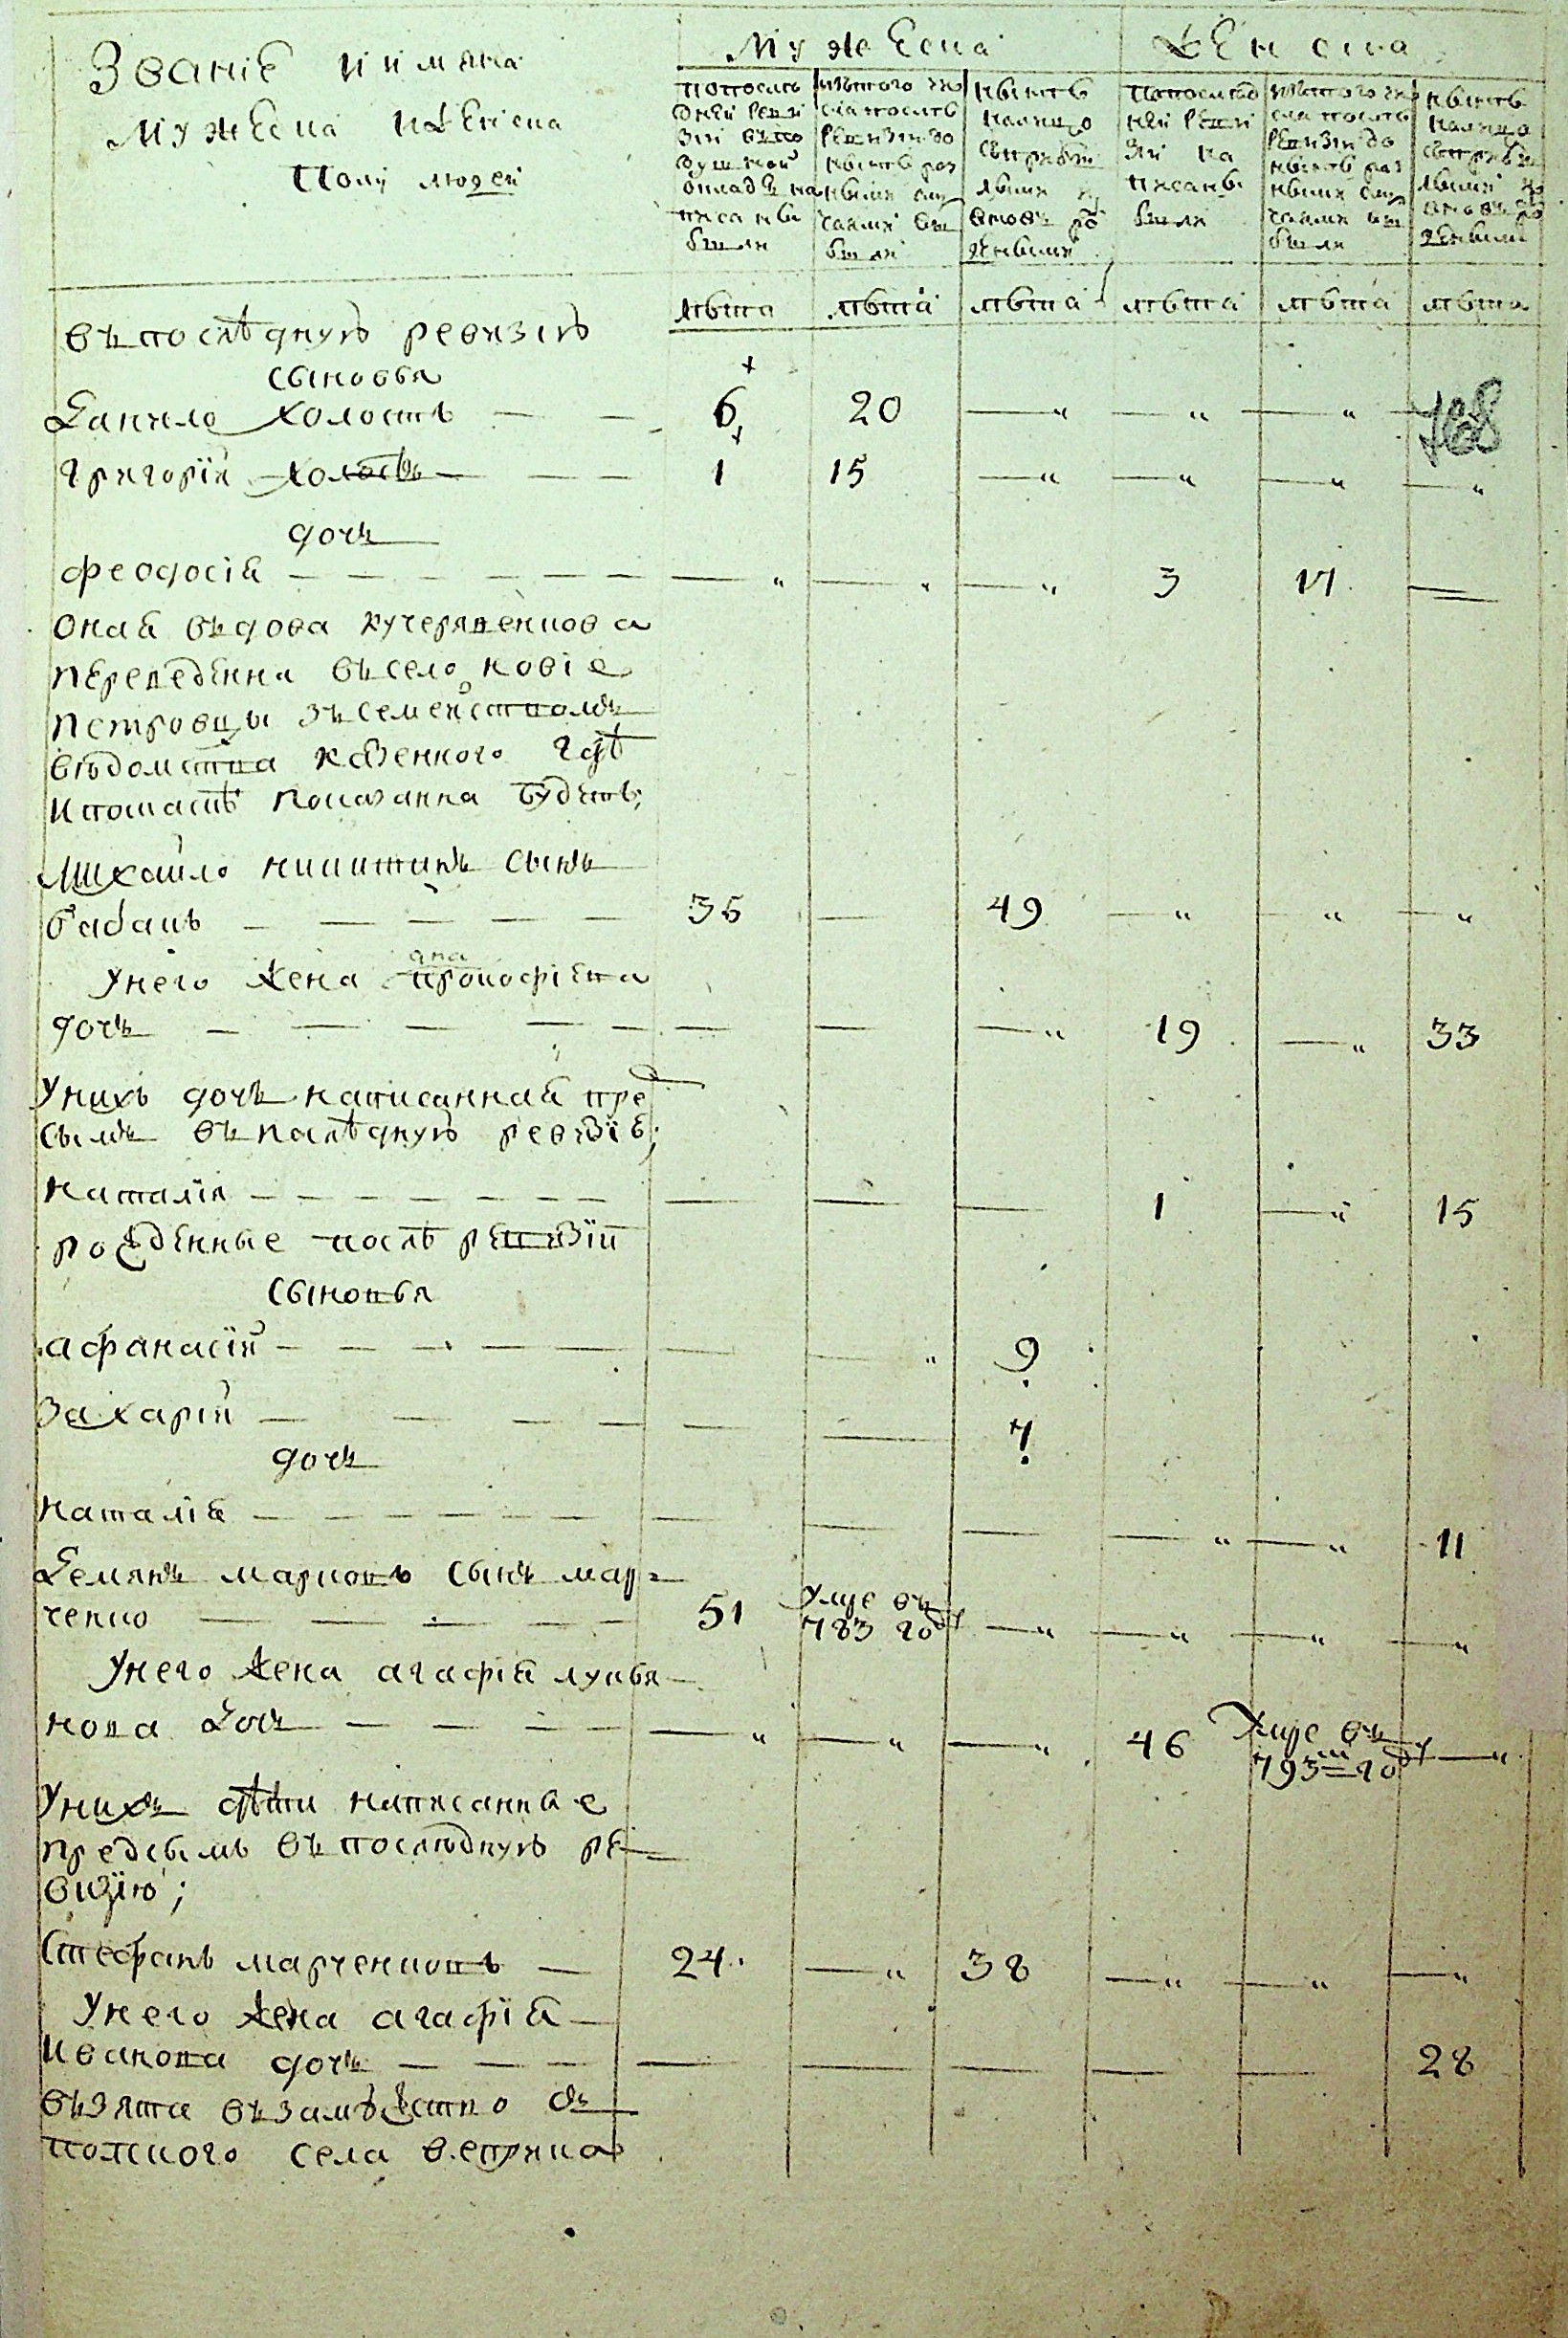 Званіе и имяна
Мужеска и женска
Полу людей
Мужеска
женска
попослѣ
дней реви
зіи въ по
душной
окладъ на
писаны
были
изътого чи
сла послѣ
ревизіи до
нынѣ раз
ными слу
чаями вы
были
нынѣ
налицо
съприбы
лыми и
вновь ро
жденными
попослѣд
ней реви
зіи на
писаны
были
изътого чи
сла послѣ
ревизіи до
нынѣ раз
ными слу
чаями вы
были
нынѣ
налицо
съприбы
лыми и
вновь ро
жденными
лѣта лѣта лѣта лѣта лѣта лѣта
въпослѣдную ревизію
сыновья
Данило холостъ — — 6 20 —„ —„ —„ 768
Григорій холостъ — — 1 15 —„ —„ —„ —„
дочь
Феодосія — — — — — — —„ —„ —„ 3 17 —
Оная въдова кучерявенкова
переведенна въсело новіе
петровцы зъсемействомъ
вѣдомства казенного гдѣ
ипоказанна будетъ;
Михайло никитинъ сынъ
бабакъ — — — — — 35 — 49 —„ —„ —„
Унего жена прокофіева
дочь — — — — — — — —„ 19 —„ 33
Унихъ дочь написанная пре
сымъ въпаслѣдную ревизію;
наталія — — — — — — — — — — 1 —„ 15
рожденные послѣ ревизіи
сыновья
афанасій — — — — — — —„ 9
Захарій — — — — — — 7
дочь
наталія — — — — — — — — — —„ —„ 11
Демянъ марковъ сынъ мар-
ченко — — — — 51 Умре въ 783 году —„ —„ —„ —„
Унего жена агафія лукья-
нова дочь — — — — —„ —„ —„ 46 Умре въ 793м году —„
Унихъ дѣти написанные
предсымъ въпослѣдную ре-
визію;
Стефанъ марченковъ — 24 —„ 38 —„ —„ —„
Унего жена агафія —
иванова дочь — — — — — — — — 28
възята въ замѣжство съ
полского села веприка